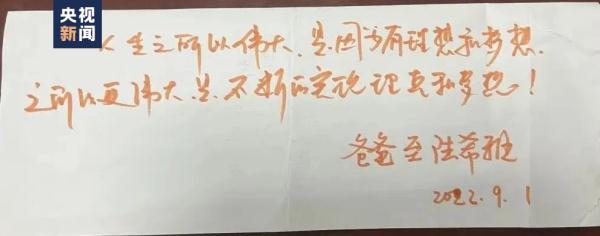 央视
新闻
人生之所以伟大,是因为有理想和梦想,
之所以更伟大,是不断的实现理想和梦想!
爸爸至陆希雅
2022.9.1